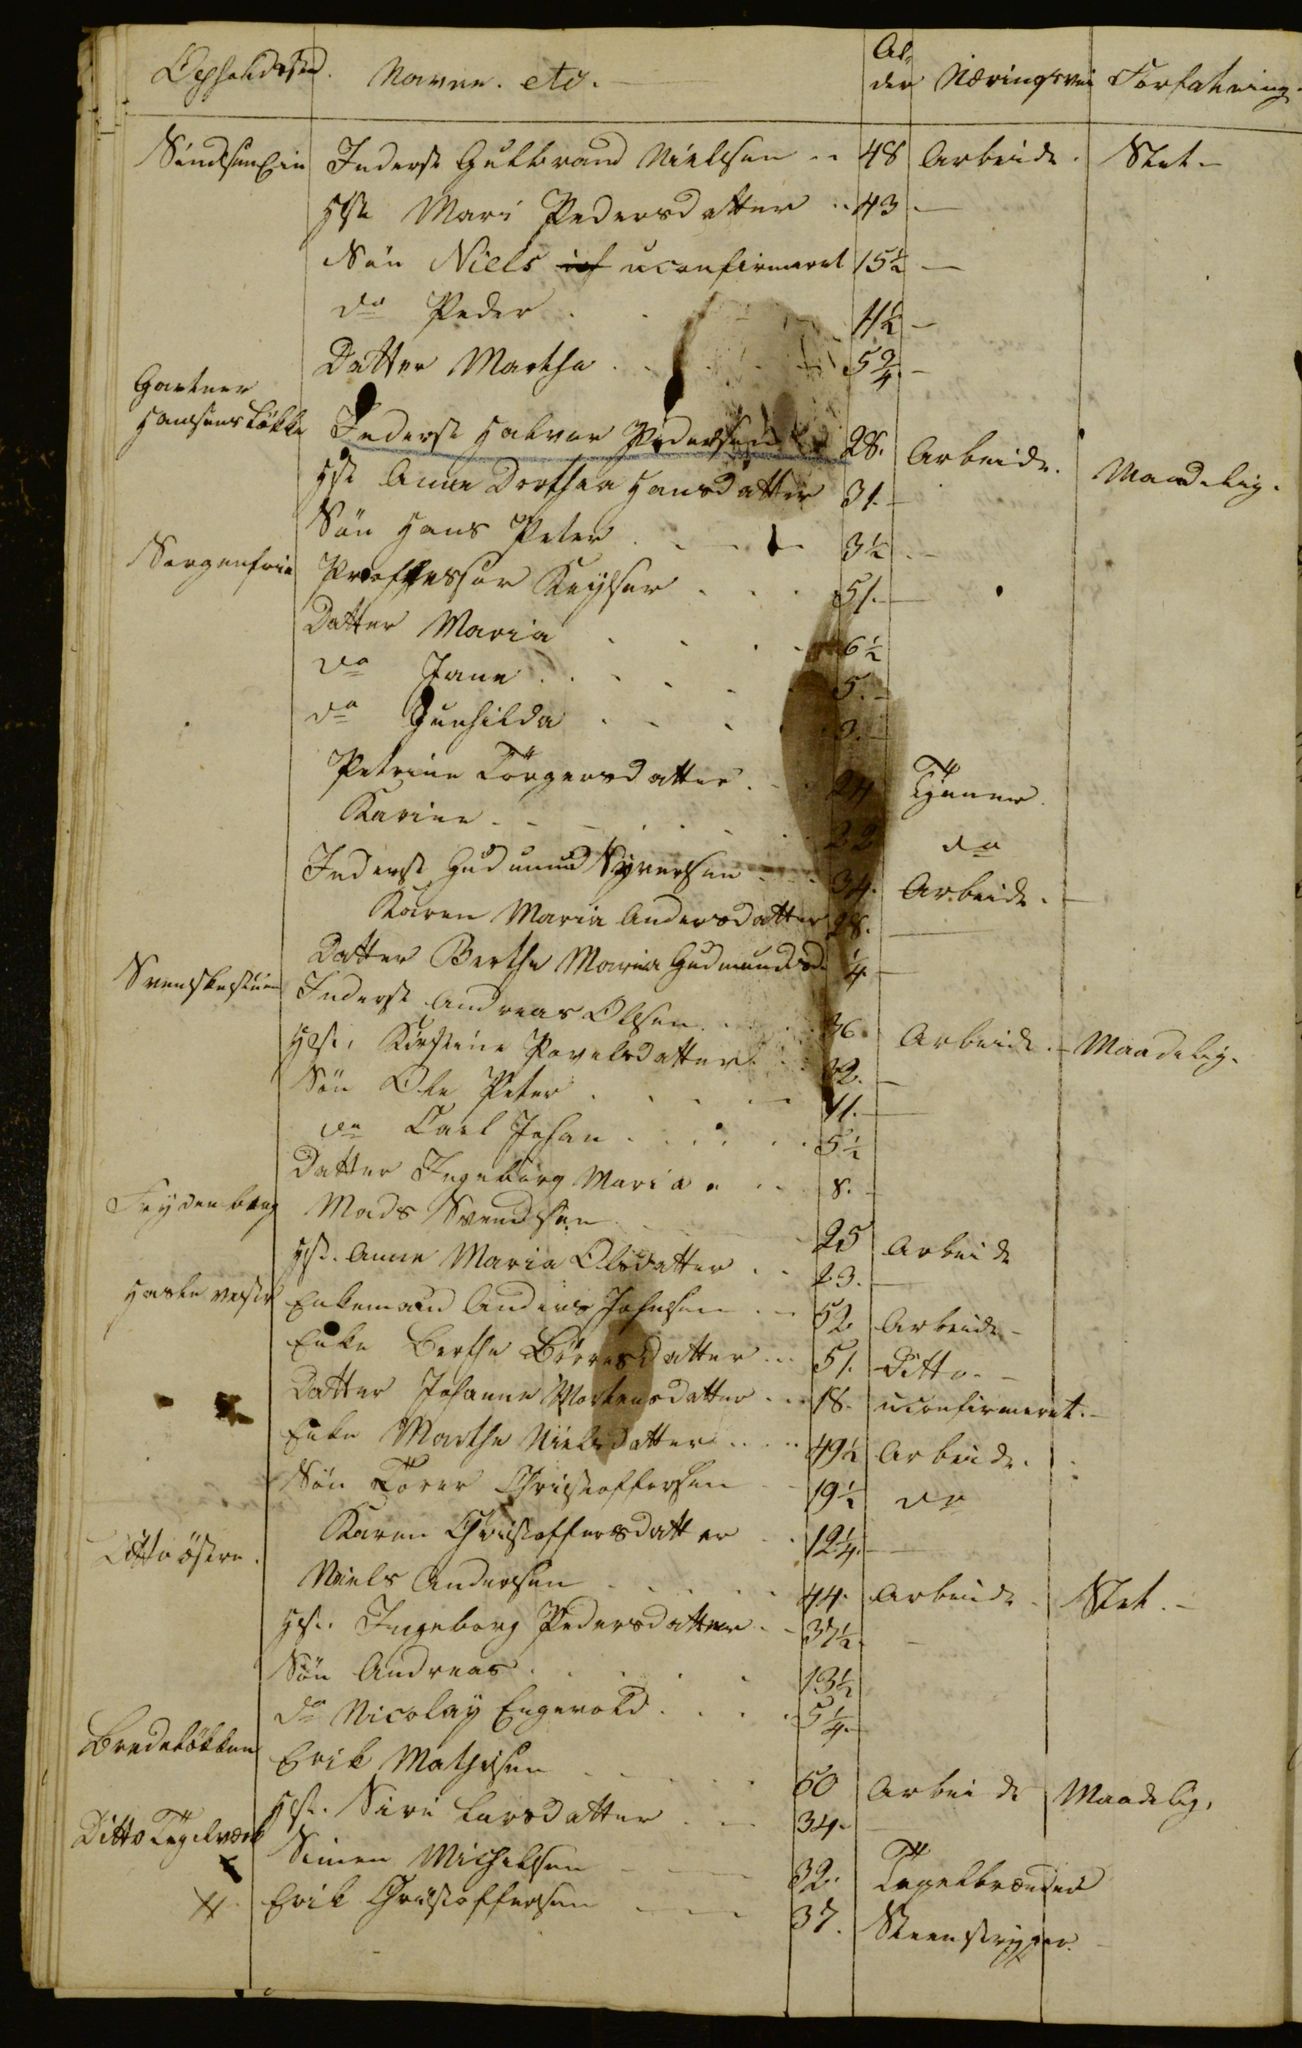 Opholdssted. Navne. etc. Al- der Næringsvei Forfatning.
Inderst Gulbrand Nielsen 48 Arbeide. Slet
Hst Mari Pedersdatter 43
Søn Niels uconfirmeret 15½
do Peder 11½
Datter Marthe 5¾
Gartner
Hansens Løkke Inderst Halvor Pedersen 28. Arbeide. Maadelig.
Hst Anne Dorthea Hansdatter 31.
Søn Hans Peter 3½
Sorgenfrie Proffessor Keyser 51.
Datter Maria 6½
do Jane 5.
do Gunhilda 3.
Petrine Törgersdatter 24 Tjener.
Karine 22 do
Inderst Gudmund Syversen 34. Arbeide.
Karen Maria Andersdatter 28.
Datter Berthe Maria Gudmundsd. ¼
Svenskestuen Inderst Andreas Olsen 36. Arbeide. Maadelig.
Hst. Kirstine Povelsdatter 32.
Søn Ole Peter 11.
do Carl Johan 5½
Datter Ingeborg Maria 8.
Frydenberg Mads Svendsen 25 Arbeide
Hst. Anne Maria Olsdatter 23.
Hasle vestre Enkemand Anders Johnsen 52 Arbeide
Enke Berthe Börresdatter 51. Ditto.
Datter Johanne Mortensdatter 18. uconfirmeret.
Enke Marthe Nielsdatter 49½ Arbeide.
Søn Torer Christoffersen 19½ do
Karen Christoffersdatter 12¼
Ditto östre. Niels Andersen 44. Arbeide. Slet.
Hst. Ingeborg Pedersdatter 37½
Søn Andreas 13½
do Nicolay Engevold 5¼
Bredeløkken Erik Mathisen 50 Arbeide Maadelig.
Hst. Siri Larsdatter 34.
Ditto Teglværk Simen Michelsen 32. Tegelbrænder
Erik Christoffersen 37. Steenstryger.